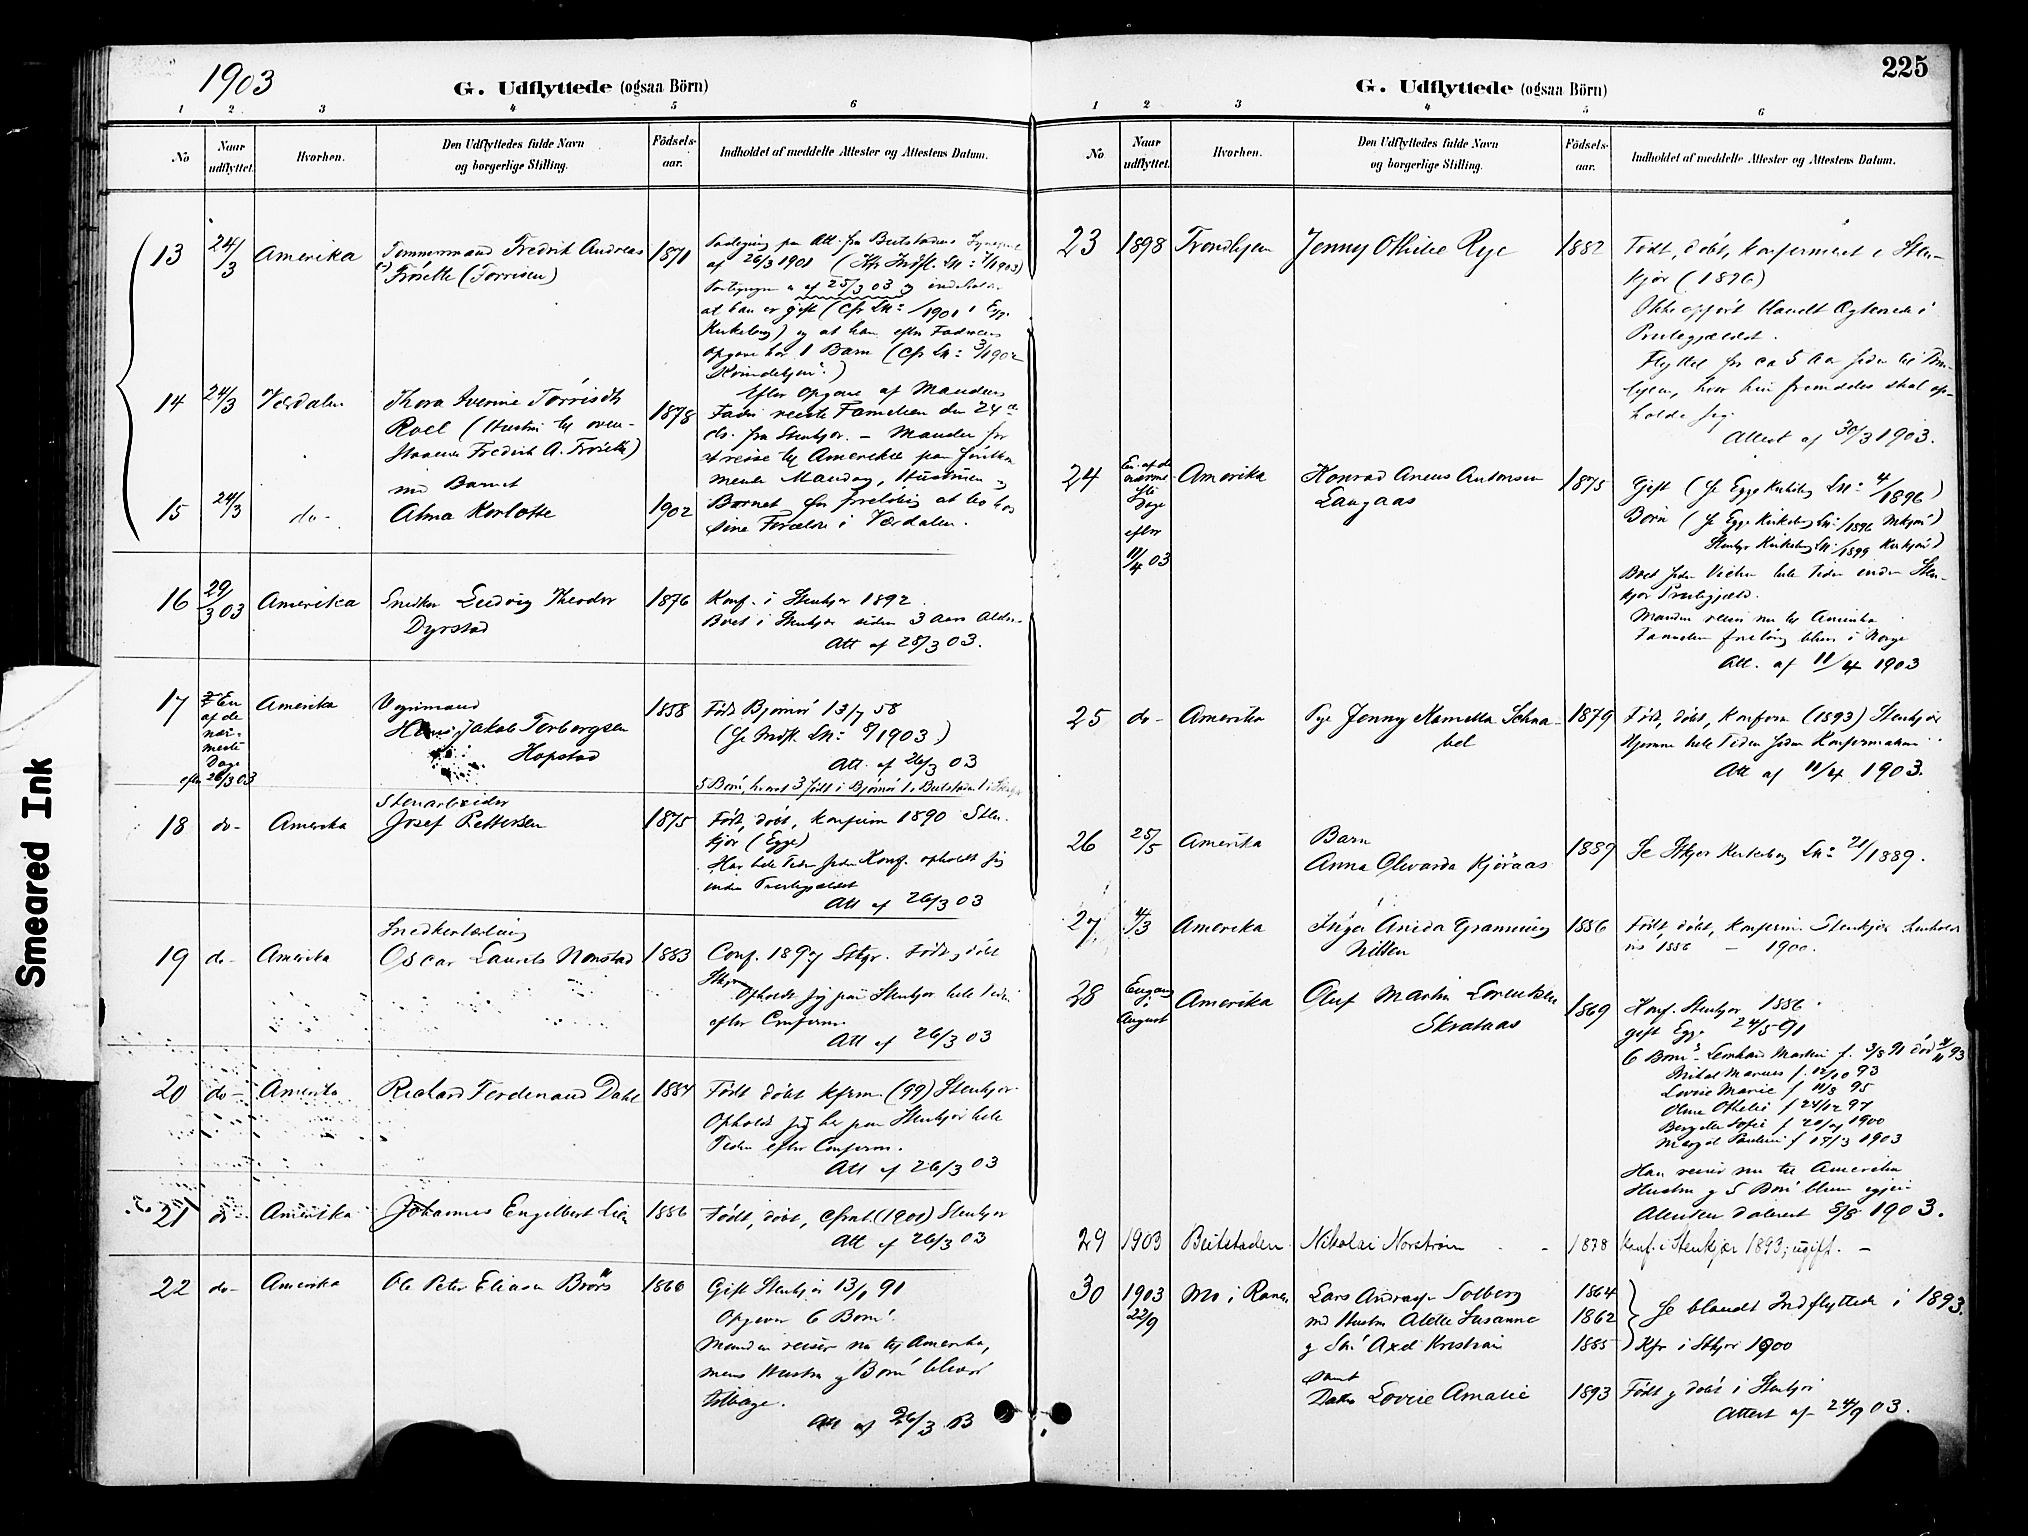 225
1903
G. Udflyttede (ogsaa Börn)
1 2 3 4 5 6
No
Naar udflyttet.
Hvorhen.
Den Udflyttedes fulde Navn og borgerlige Stilling.
Födsels-aar.
Indholdet af meddelte Attester og Attestens Datum.
13 24/3 Amerika Tømmermand Fredrik Andreas 1871
Frösette (Torrisen)
af 26/3 1901
af 25/3 03
at han er gift
Kirkebog) og at han efter Faderens
Opgave har 1 Barn
Efter Opgave af Mandens
14 24/3 Værdalen Thora Averine Torrisdt 1878
Roel (Hustru til oven-
Fredrik A. Frösette)
Fader reiste Familien den 24de
ds. fra Stenkjær. – Manden for
at reise til Amerika
Mandag, Hustruen og
med Barnet
15 24/3 do- Alma Karlotte 1902
Barnet for foreløbig at bo hos
sine Forældre i Værdalen.
16 29/3 03 Amerika Snedker Ludvig Theodor 1876
Dyrstad
Konf. i Stenkjær 1892.
Boet i Stenkjær siden 3 Aars Alder.
Att af 28/3 03.
17 En af de nær-meste Dage efter 26/3 03
Amerika
Jakob Torbergsen 1858
Hopstad
Født Bjørnør 13/7 58
(Se Indfl. Ln: 8/1903)
Att. af 26/3 03
5 Børn, hvoraf 3 født i Bjørnør 1 i Beitstaden 1 i
Stenarbeider
18 do- Amerika Josef Pettersen 1875
Født, døbt, konfirm 1890 Sten-
kjær (Egge)
Har hele Tiden siden Konf. opholdt sig
inden Præstegjældet
Att af 26/3 03
19 do- Amerika Oscar Laurits Nonstad 1883
Conf. 1897 Stkjr. Født og døbt
Stkjr
Opholdt sig paa Stenkjær hele Tiden
efter Confirm.
Att af 26/3 03
20 do- Amerika Richard Ferdenand Dahl 1884
Født døbt kfrm. (99) Stenkjær
Opholdt sig her paa Stenkjær hele
Tiden efter Confirm.
Att af 26/3 03
21 do- Amerika Johannes Engelbert Lien 1886
Født, døbt, (1901) Stenkjær
Att af 26/3 03
22 do- Amerika Ole Peter Eliasen Brørs 1866
Gift Stenkjær 91
Opgiver 6 Børn.
Manden reiser nu til Amerika,
mens Hustru og Børn bliver
tilbage.
Att af 26/3 03
G. Udflyttede (ogsaa Börn)
1 2 3 4 5 6
No
Naar udflyttet.
Hvorhen.
Den Udflyttedes fulde Navn og borgerlige Stilling.
Födsels-aar.
Indholdet af meddelte Attester og Attestens Datum.
23 1898 Trondhjem Jenny Othilie Rye 1882
Født, døbt, konfirmeret i Sten-
kjær (1896)
Ikke opført blandt Ægteviede i
Præstegjældet.
Flyttet for ca 5 Aar siden til Trond-
hjem, hvor hun fremdeles skal op-
holde sig
Attest af 30/3 1903.
24 En af de nærmeste Dage efter 11/4 03
Amerika Konrad Aneus Antonsen 1875
Langaas
Gift (Se Egge Kirkebog Ln: 4/1896)
Børn (Se Egge Kirkebog Ln: /1896 Mkjøn)
Stenkjær Kirkebog Ln: /1899 Kvkjøn)
Boet siden Vielsen hele Tiden inden Sten-
kjær Præstegjæld.
Manden reiser nu til Amerika
Familien foreløbig bliver i Norge
Att. af 11/4 1903
25 do- Amerika Pige Jenny Kamilla Schna- 1879
bel
Født, døbt, konfirm (1893) Stenkjær
Hjemme hele Tiden siden Konfirmationen
Att af 11/4 1903.
26 25/5 Amerika Barn
Anna Olivarda Kjøraas 1889
Se Stkjær Kirkebog Ln: 21/1889.
27 4/3 Amerika Inga Anida Granning 1886
Nilsen
Født døbt, konfirm Stenkjær
1886 – 1900.
28 Engang i August
Amerika Oluf Martin Lorentsen 1869
Skrataas
Konf. Stenkjær 1886.
gift Egge 24/5 91
6 Børn: Leonhard Martin f. 3/8 91 død 93
Marius f. 12/10 93
Lovise Marie f 11/8 95
Oline Othelie f 24/12 97
Bergitte Sofie f 20/7 1900
Margit Pauline f 17/3 1903
Han reiser nu til Amerika
Hustru og 5 Børn bliver igjen
Attesten dateret 5/8 1903.
29 1903 Beitstaden Nikolai Norstrøm 1878
Konf. i Stenkjær 1893; ugift. –
30 1903 22/9 Mo i Ranen
Lars Andreas Solberg 1864
med Hustru Alette Susanne 1862
Se blandt Indflyttede i 1893.
og Søn Axel Kristian 1885 Kfr i Stkjær 1900
samt
Datter Lovise Amalie 1893 Født og døbt i Stenkjær
Attest af 24/9 03.
Smeared Ink